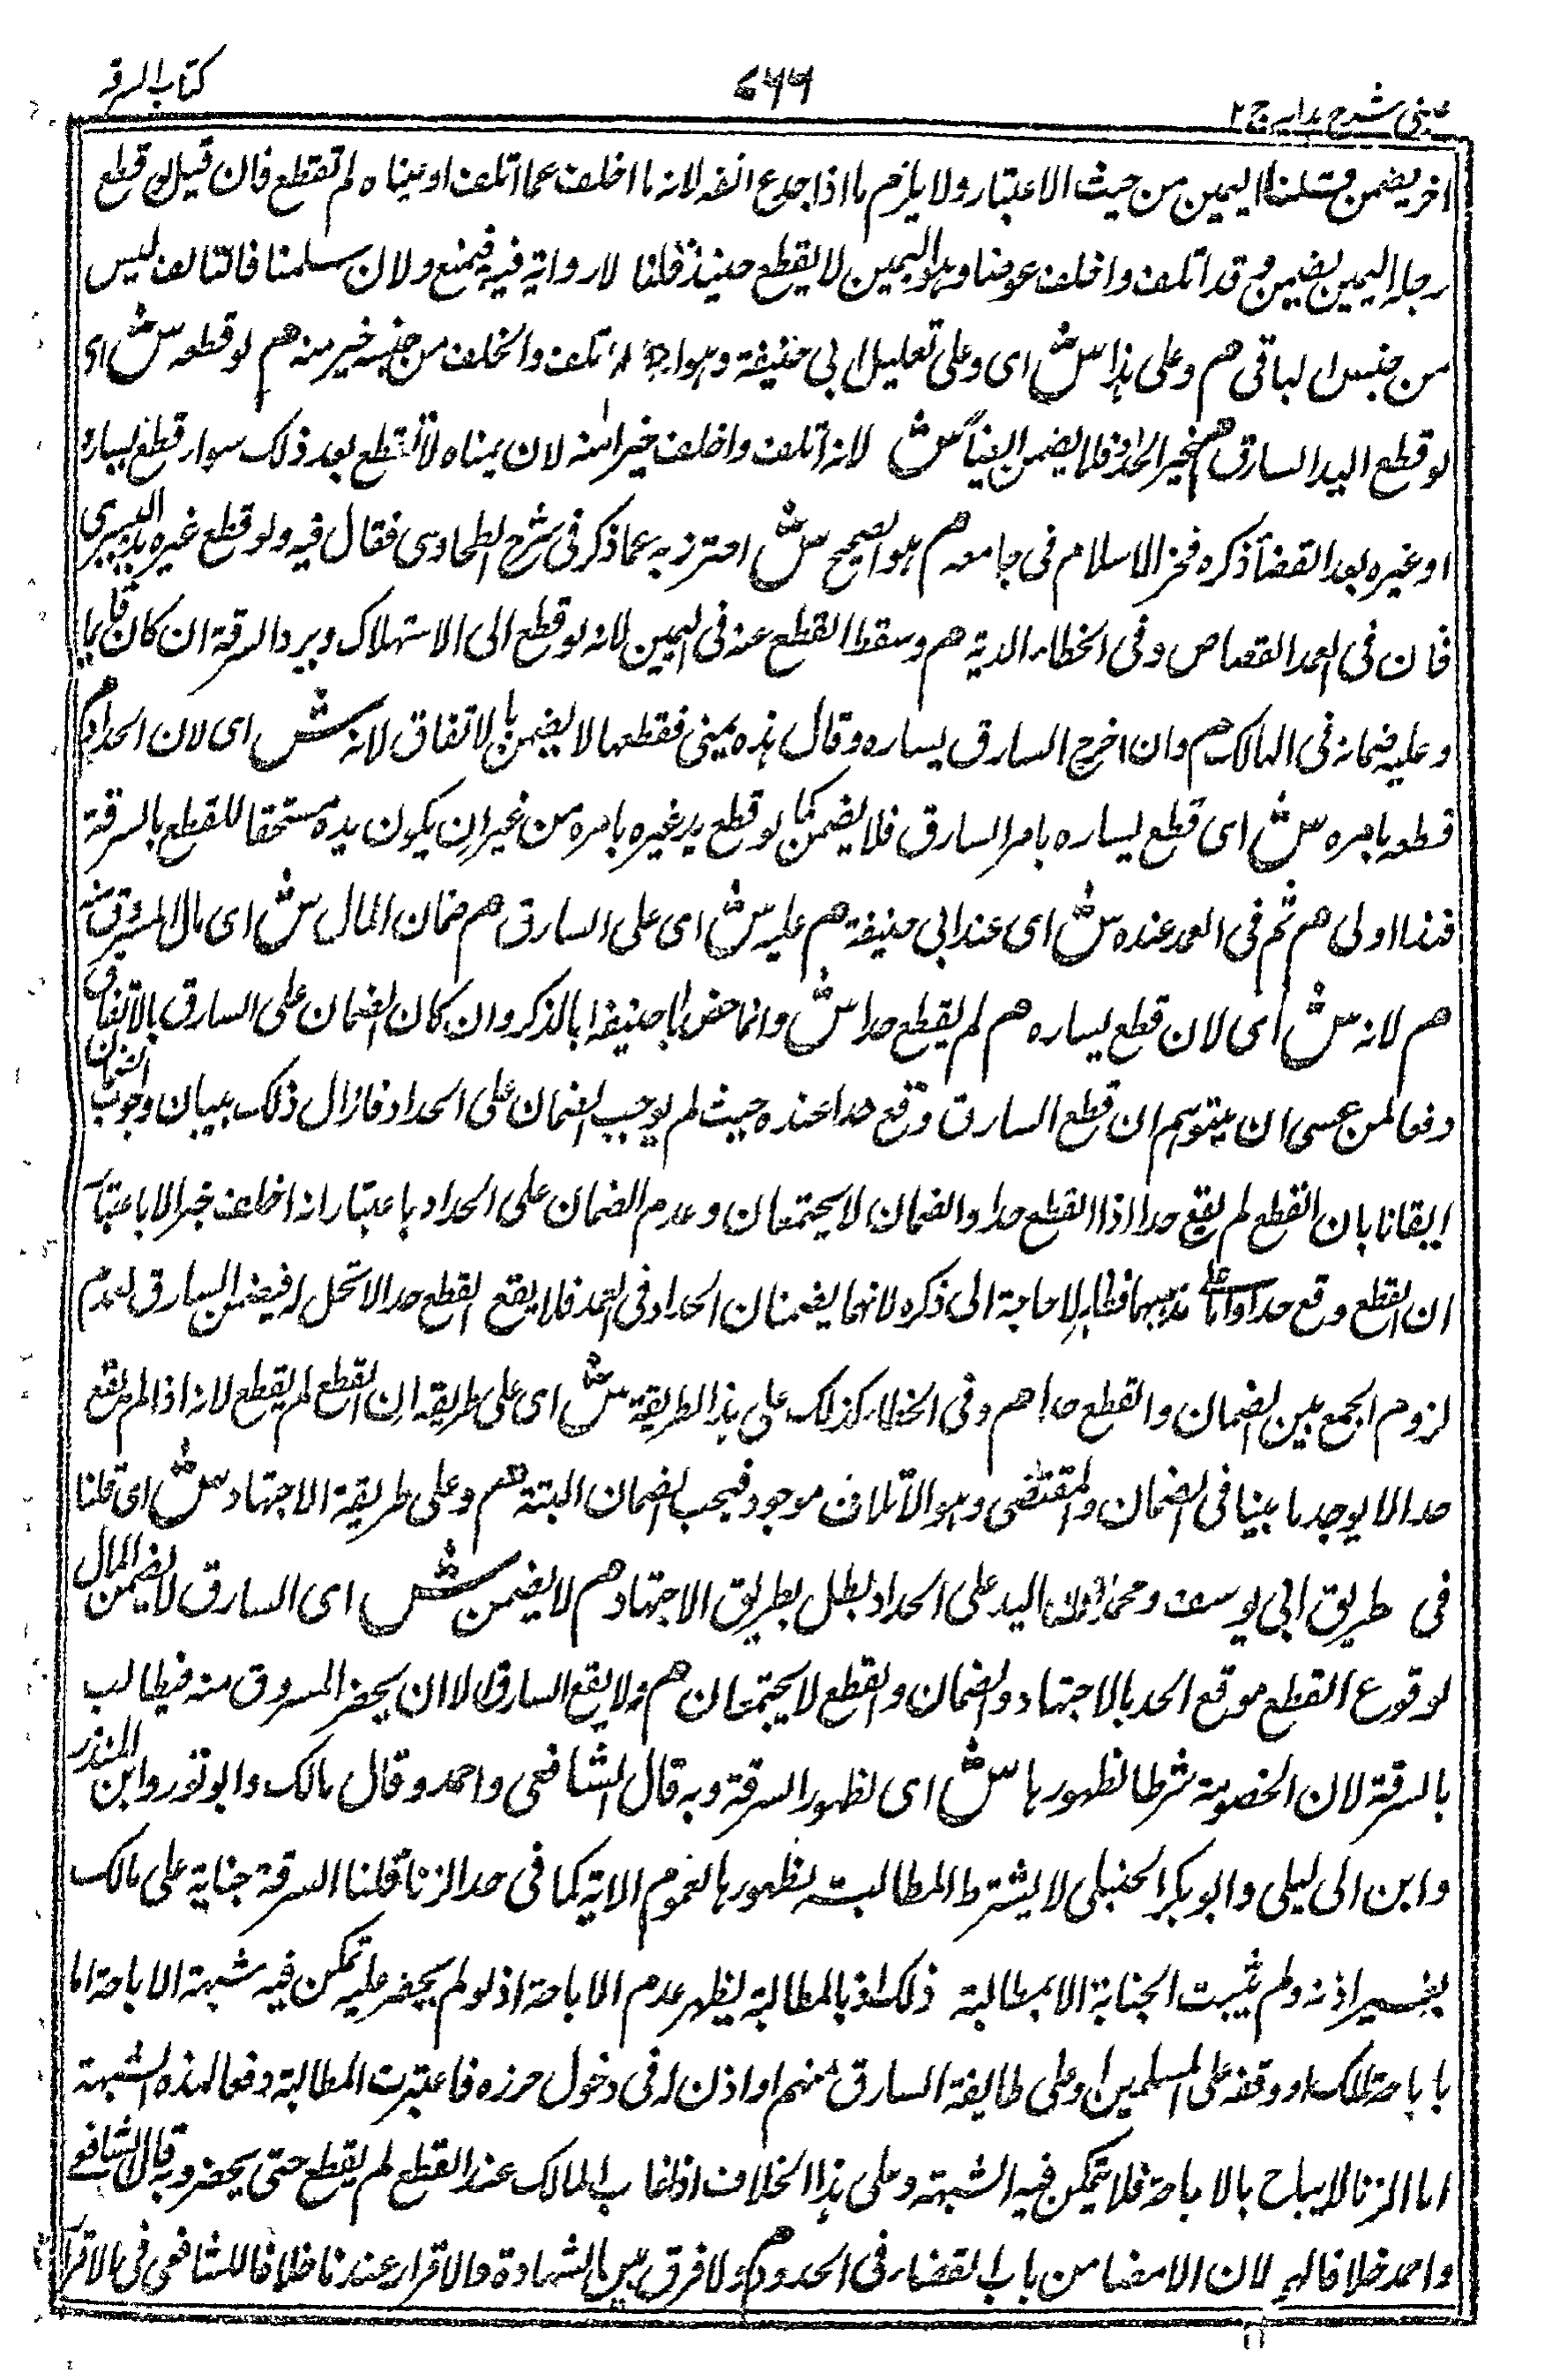 عینی شرح ہدایہ ج ۲
۷۶۶
کتاب السرقہ
اخر یضمن وقلنا الیمین من حیث الاعتبار ولا یلزم ما اذا جدع انفہ لانہ ما اخلف عما اتلف او عیناہ لم تقطع فان قیل لو قطع
رجلہ الیمین یضمن وقد اتلف واخلف عوضا وہو الیمین لا یقطع حینئذ قلنا لا روایۃ فیہ فیمنع ولان سلمنا فالتالف لیس
من جنس الباقی هم وعلی ہذا ش ای وعلی تعلیل ابی حنیفۃ وہو انہ اتلف والخلف من جنسہ خیر منہ هم لو قطعہ ش ای
لو قطع الید السارق هم غیر الحداد فلا یضمن ایضا ش لانہ اتلف واخلف خیرا منہ لان یمناہ لا تقطع بعد ذلک سواء قطع یسارہ
او غیرہ بعد القضاء ذکرہ فخر الاسلام فی جامعہ هم ہو الصحیح ش احترز بہ عما ذکر فی شرح الطحاوی فقال فیہ ولو قطع غیرہ یدہ الیسری
فان فی العمد القصاص وفی الخطاء الدیۃ هم وسقط القطع عنہ فی الیمین لانہ لو قطع الی الاستہلاک ویرد السرقۃ ان کان قایما
وعلیہ ضمانہ فی الہالک هم وان اخرج السارق یسارہ وقال ہذہ یمینی فقطعہا لا یضمن بالاتفاق لانہ ش ای لان الحداد هم
قطعہ بامرہ ش ای قطع یسارہ بامر السارق فلا یضمن کما لو قطع ید غیرہ بامرہ من غیر ان یکون یدہ مستحقا للقطع بالسرقۃ
فہذا اولی هم ثم فی العمد عندہ ش ای عند ابی حنیفۃ هم علیہ ش ای علی السارق هم ضمان المال ش ای مال المسروق منہ
هم لانہ ش ای لان قطع یسارہ هم لم یقطع حدا ش وانما خص ابا حنیفۃ بالذکر وان کان الضمان علی السارق بالاتفاق
دفعا لمن عسی ان یتوہم ان قطع السارق وقع حدا عندہ حیث لم یوجب الضمان علی الحداد فازال ذلک ببیان وجوب الضمان
ایقانا بان القطع لم یقع حدا اذا القطع حدا والضمان لا یجتمعان وعدم الضمان علی الحداد باعتبار انہ اخلف خیرا لا باعتبار
ان القطع وقع حدا واما علی مذہبہما فظاہر لا حاجۃ الی ذکرہ لانہما یضمنان الحداد فی العمد فلا یقع القطع حدا لا تحل لہ فیضمن السارق لعدم
لزوم الجمع بین الضمان والقطع حدا هم وفی الخطاء کذلک علی ہذا الطریقۃ ش ای علی طریقۃ ان القطع لم یقطع لانہ اذا لم یقع
حدا لا یوجد ما ینافی الضمان والمقتضی وہو الاتلاف موجود فیجب الضمان البتۃ هم وعلی طریقۃ الاجتہاد ش ای قلنا
فی طریق ابی یوسف ومحمد الید علی الحداد بطل بطریق الاجتہاد هم لا یضمن ش ای السارق لا یضمن المال
لوقوع القطع موقع الحد بالاجتہاد والضمان والقطع لا یجتمعان هم ولا یقع السارق الا ان یحضر المسروق منہ فیطالب
بالسرقۃ لان الخصومۃ شرط لظہورہا ش ای لظہور السرقۃ وبہ قال الشافعی واحمد وقال مالک وابو ثور وابن المنذر
وابن ابی لیلی وابو بکر الحنبلی لا یشترط المطالبۃ لظہورہا لعموم الایۃ کما فی حد الزنا قلنا السرقۃ جنایۃ علی مالک
بغیر اذنہ ولم یثبت الجنایۃ الا بمطالبۃ ذلک اذ بالمطالبۃ یظہر عدم الاباحۃ اذ لو لم یحضر علیہ تمکن فیہ شبہۃ الاباحۃ اما
باباحۃ المالک او وقفہ علی المسلمین او علی طایفۃ السارق منہم او اذن لہ فی دخول حرزہ فاعتبرت المطالبۃ دفعا لہذہ الشبہۃ
اما الزنا لا یباح بالاباحۃ فلا یتمکن فیہ الشبہۃ وعلی ہذا الخلاف اذا غاب المالک عند القطع لم یقطع حتی یحضر وبہ قال الشافعی
واحمد خلافا لہ لان الامضا من باب القضاء فی الحدود هم ولا فرق بین الشہادۃ والاقرار عندنا خلافا للشافعی فی الاقرار